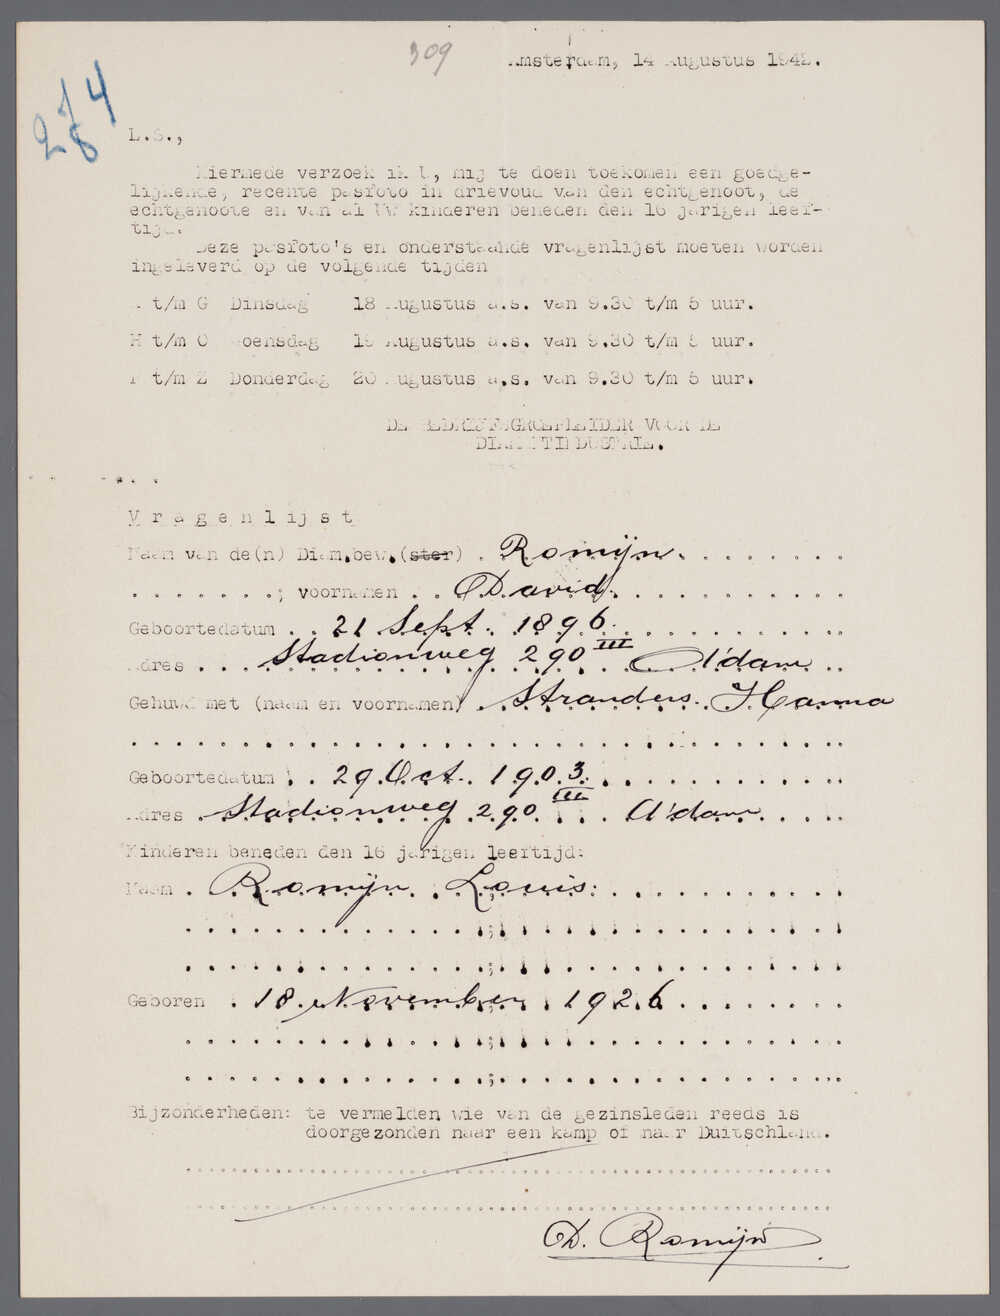 309
Amsterdam, 14 Augustus 1942.
274
8
L.S.,
Hiermede verzoek ik U, mij te doen toekomen een goedge-
lijkende, recente pasfoto in drievoud van den echtgenoot, de
echtgenoote en van al Uw kinderen beneden den 16 jarigen leef-
tijd.
Deze pasfoto's en onderstaande vragenlijst moeten worden
ingeleverd op de volgende tijden
A t/m G Dinsdag 18 Augustus a.s. van 9.30 t/m 5 uur.
H t/m O Woensdag 19 Augustus a.s. van 9.30 t/m 5 uur.
P t/m Z Donderdag 20 Augustus a.s. van 9.30 t/m 5 uur.
DE BEDRIJFSGROEPLEIDER VOOR DE
DIAMANTINDUSTRIE.
Vragenlijst
Naam van de(n) Diam.bew.(ster) . Romijn.
; voornamen . . David.
Geboortedatum . . 21 Sept. 1896.
Adres . . . Stadionweg 290 III A'dam
Gehuwd met (naam en voornamen) . Stranders. Hanna
Geboortedatum . . 29 Oct. 1903.
Adres . Stadionweg 290 III A'dam
Kinderen beneden den 16 jarigen leeftijd:
Naam . Romijn Louis.
Geboren . 18 November 1926
Bijzonderheden: te vermelden wie van de gezinsleden reeds is
doorgezonden naar een kamp of naar Duitschland.
D. Romijn